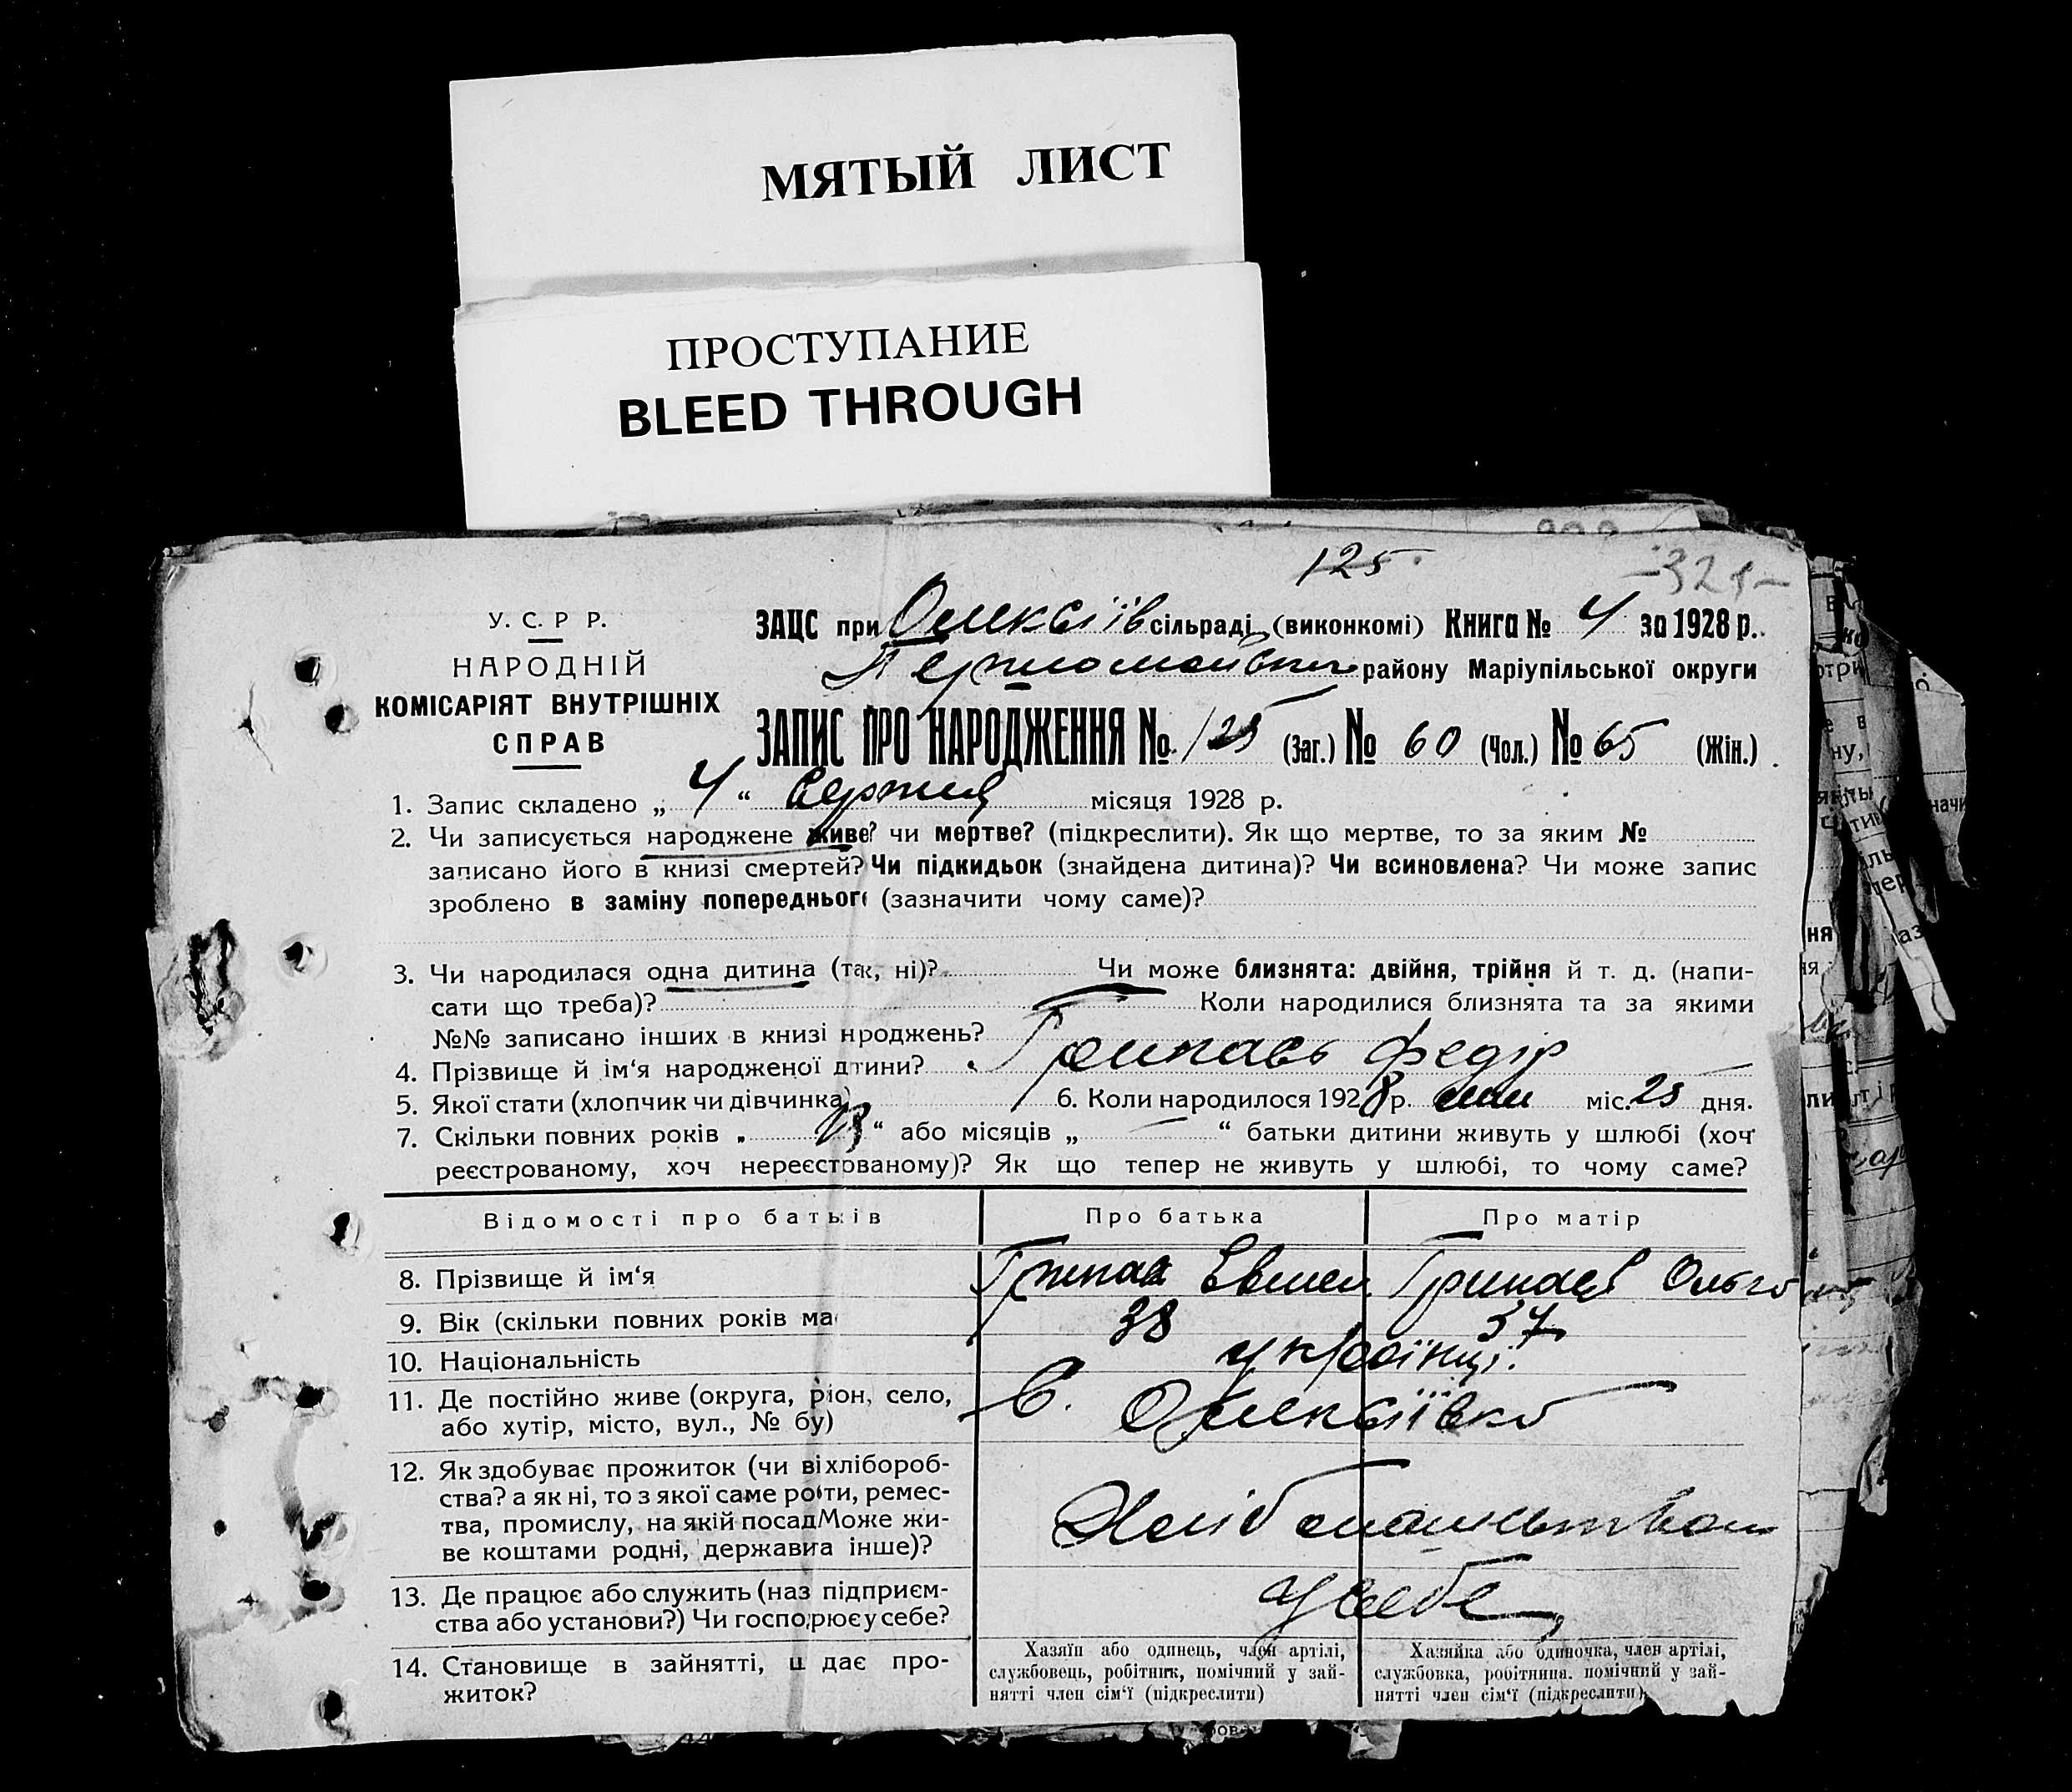 МЯТЫЙ ЛИСТ
ПРОСТУПАНИЕ
BLEED THROUGH
125
-325-
У. С. Р Р.
НАРОДНІЙ
КОМІСАРІЯТ ВНУТРІШНІХ
СПРАВ
ЗАЦС при Олексіїв сільраді (виконкомі) Книга № 4 за 1928 р.
Першомайськ району Маріупільської округи
ЗАПИС ПРО НАРОДЖЕННЯ № 125 (Заг.) № 60 (Чол.) № 65 (Жін.)
1. Запис складено „ 4 “ серпня місяця 1928 р.
2. Чи записується народжене живе? чи мертве? (підкреслити). Як що мертве, то за яким №
записано його в книзі смертей? Чи підкидьок (знайдена дитина)? Чи всиновлена? Чи може запис
зроблено в заміну попереднього (зазначити чому саме)?
3. Чи народилася одна дитина (так, ні)? Чи може близнята: двійня, трійня й т. д. (напи-
сати що треба)? Коли народилися близнята та за якими
№№ записано інших в книзі нроджень?
4. Прізвище й ім‘я народженої дтини? Федір
5. Якої стати (хлопчик чи дівчинка) 6. Коли народилося 1928 р. міс. 25 дня.
7. Скільки повних років „ “ або місяців „ — “ батьки дитини живуть у шлюбі (хоч
реєстрованому, хоч нереєстрованому)? Як що тепер не живуть у шлюбі, то чому саме?
Відомості про батьків Про батька Про матір
8. Прізвище й ім‘я Ольга
9. Вік (скільки повних років ма 38 37
10. Національність українці.
11. Де постійно живе (округа, ріон, село,
або хутір, місто, вул., № бу) с. Олексіївка
12. Як здобуває прожиток (чи ві хлібороб-
ства? а як ні, то з якої саме роти, ремес-
тва, промислу, на якій посад Може жи-
ве коштами родні, держави а інше)? Хлібопашеством
13. Де працює або служить (наз підприєм-
ства або установи?) Чи госпорює у себе? у себе
14. Становище в зайнятті, щ дає про-
житок?
Хазяїн або одинець, член артілі,
службовець, робітник, помічний у зай-
нятті член сім‘ї (підкреслити)
Хазяйка або одиночка, член артілі,
службовка, робітниця. помічний у зай-
нятті член сім‘ї (підкреслити)